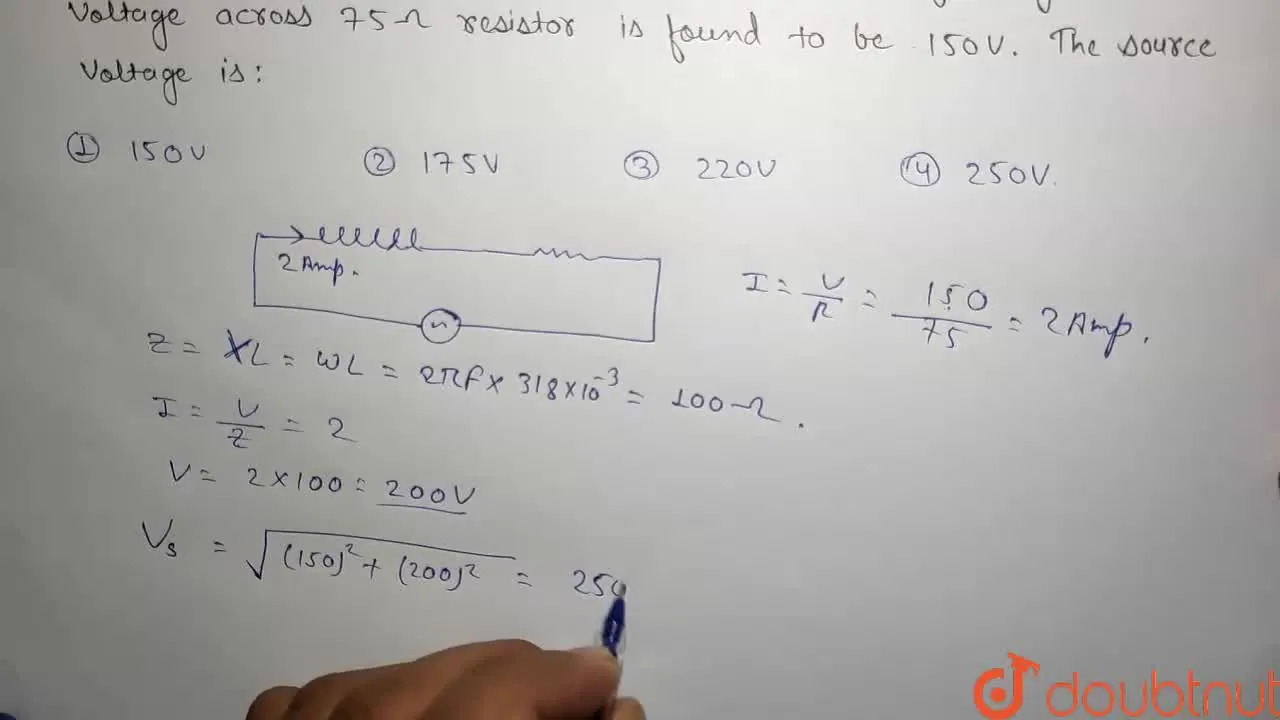 Voltage across 75Ω resistor is found to be 150V. The source
Voltage is:
① 150V ② 175V ③ 220V ④ 250V.
2 Amp.
I = V/R = 150/75 = 2 Amp.
Z = XL = ωL = 2πf × 318×10⁻³ = 100Ω.
I = V/Z = 2
V = 2×100 = 200V
Vs = √(150)² + (200)² = 250
doubtnut